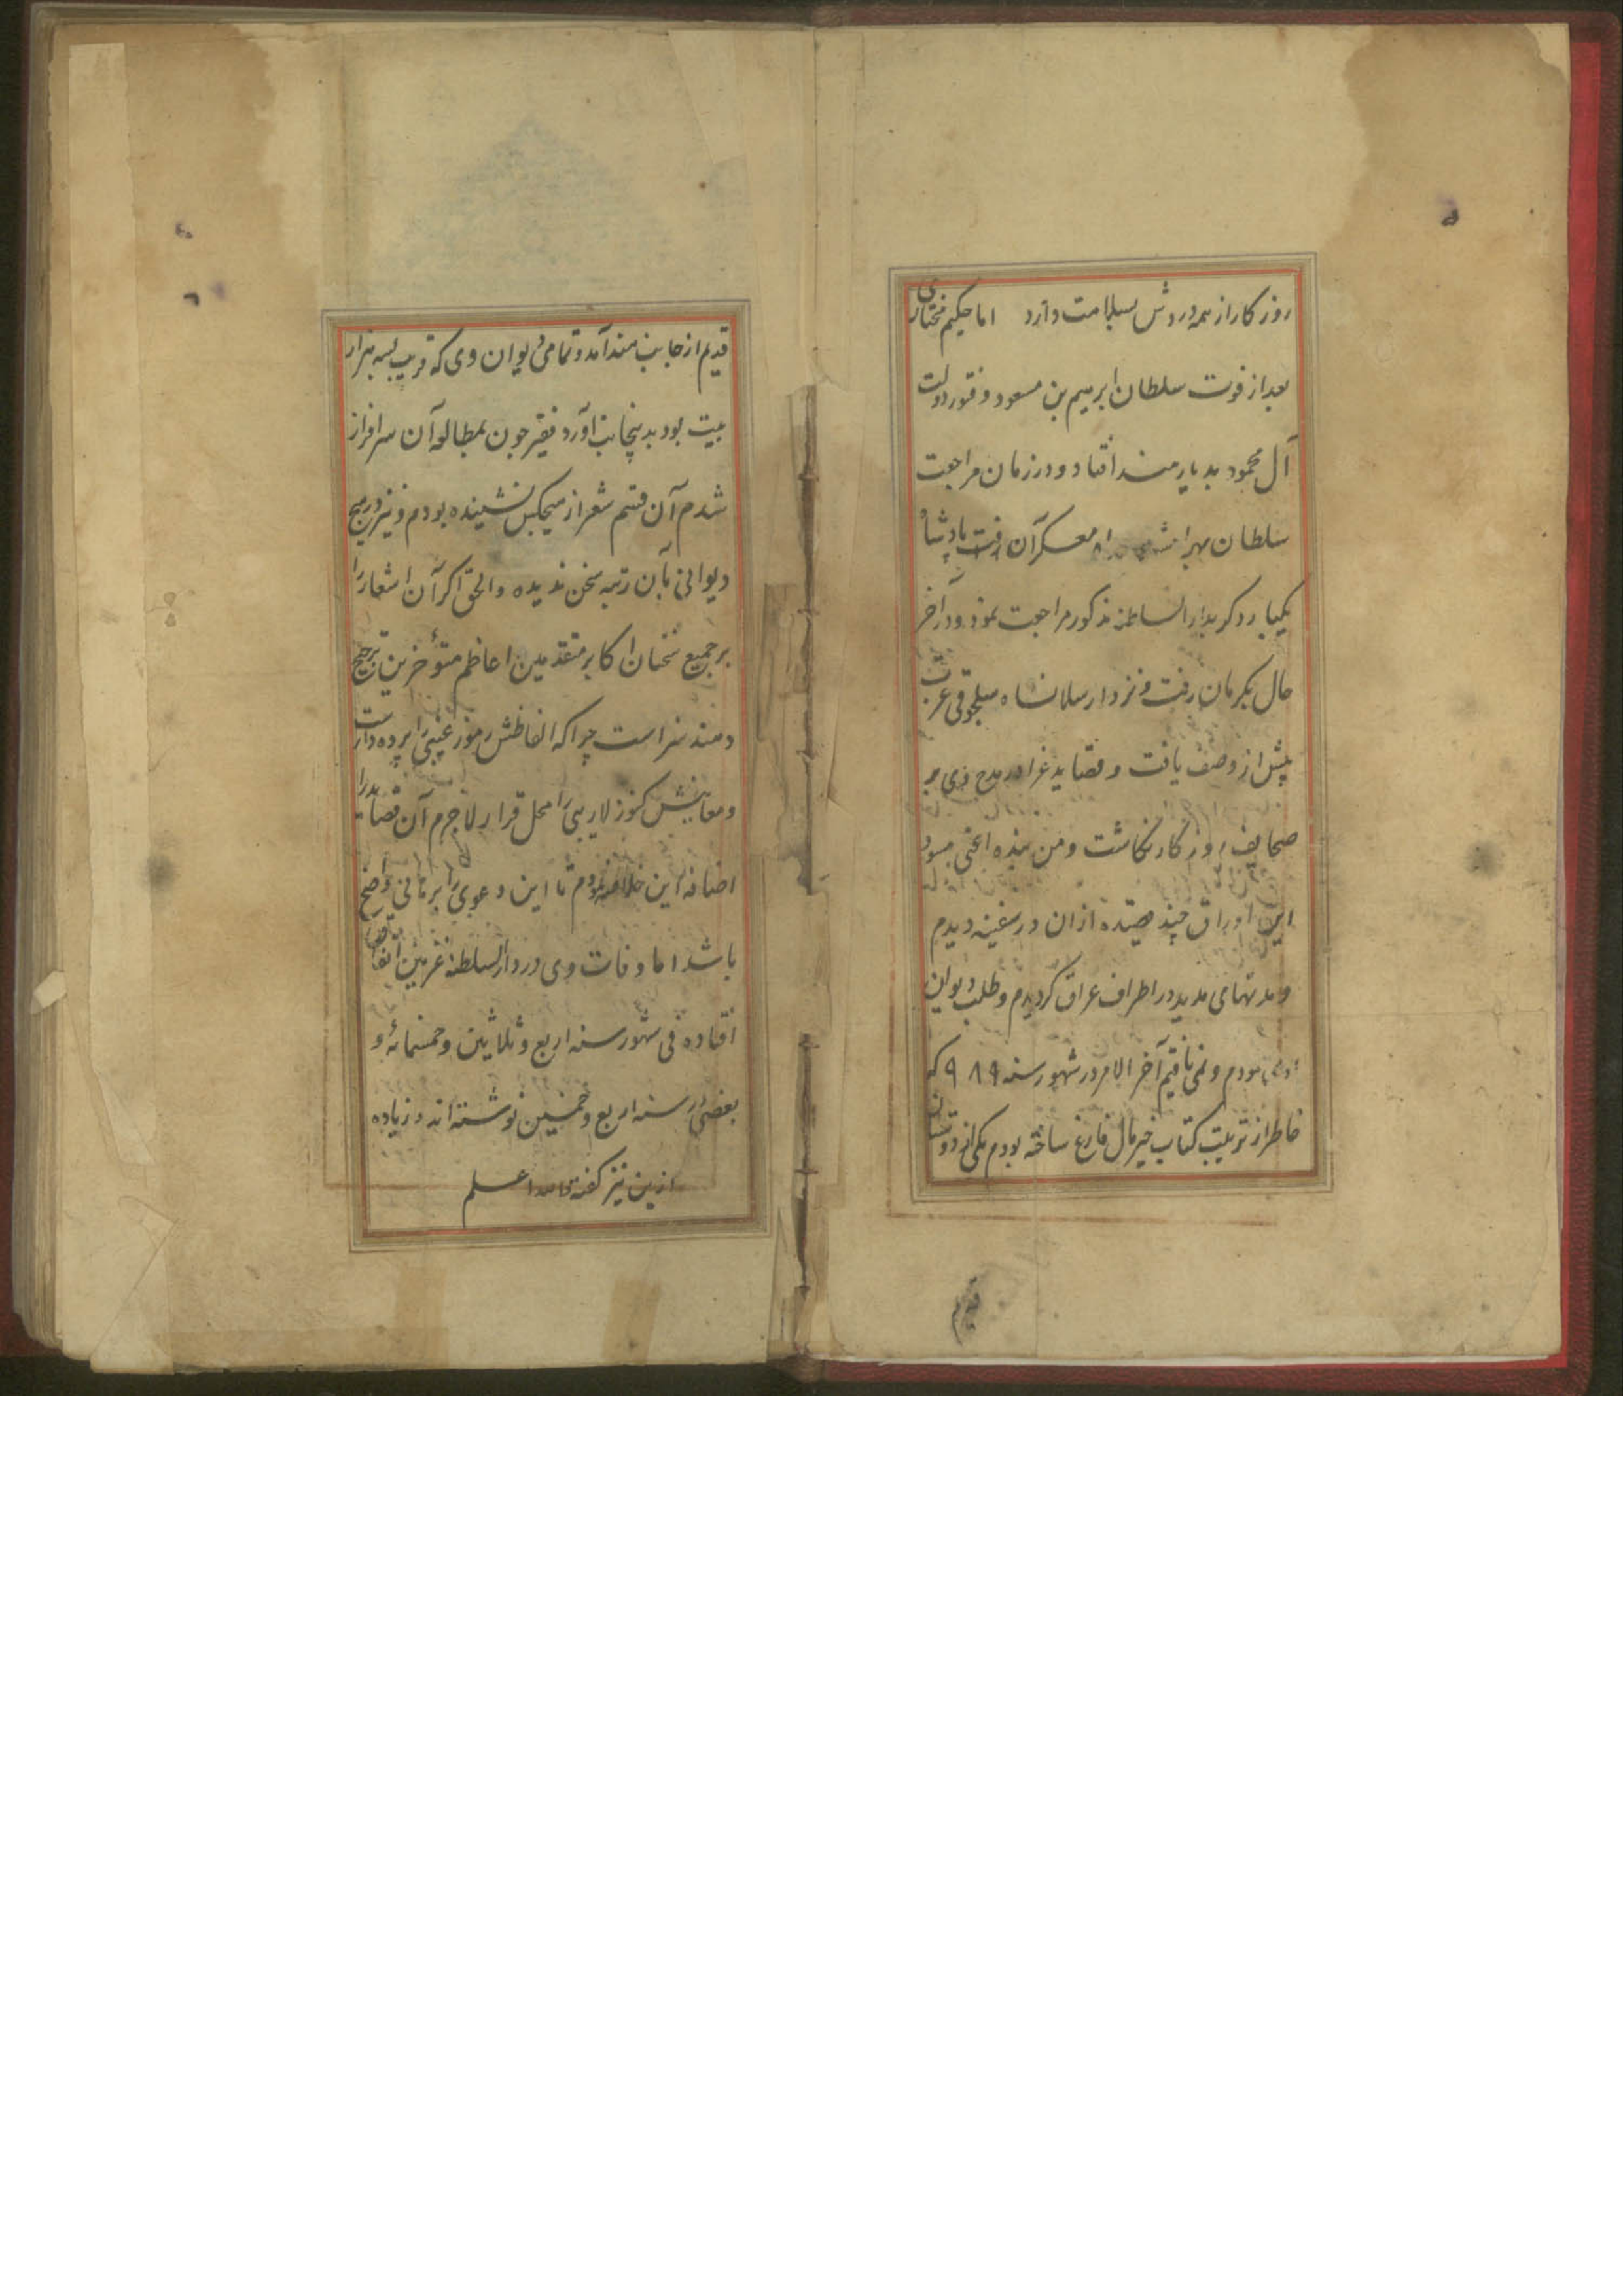 روزکار از همه دردش بسلامت دارد اما حکیم مختاری
بعد از فوت سلطان ابرهیم بن مسعود و فتور دولت
آل محمود بدیار هند افتاد و در زمان مراجعت
سلطان بهرامشاه معسکر آن پادشاه
یکبار دکر بدار السلطنه مذکور مراجعت نمود و در آخر
حال بکرمان رفت و نزد ارسلانشاه سلجوقی عزت
بیش از وصف یافت و قصاید غرا در مدح وی بر
صحایف روزکار نکاشت و من بنده اعنی مسود
این اوراق چند قصیده ازان در سفینه دیدم
و مدتهای مدید در اطراف عراق کردیدم و طلب دیوان
می نمودم و نمی یافتم آخر الامر در شهور سنه ۹۸۹ که
خاطر از ترتیب کتاب خیر مال فارغ ساخته بودم یکی از دوستان
قدیم
قدیم از جانب هند آمد و تمامی دیوان وی که قریب بسه هزار
بیت بود بدینجانب آورد فقیر چون بمطالعه آن سرافراز
شدم آن قسم شعر از هیچکس نشنیده بودم و نیز در هیچ
دیوانی بآن رتبه سخن ندیده و الحق اکر آن اشعار را
بر جمیع سخنان اکابر متقدمین اعاظم متؤخرین ترجیح
دهند سزاست چرا که الفاظش رموز غیبی را پرده دارست
و معانیش کنوز لاریبی را محل قرار لاجرم آن قصاید را
اضافه این خلاصه نمودم تا این دعوی را برهانی واضح
باشد اما وفات وی در دار السلطنه غزنین اتفاق
افتاده فی شهور سنه اربع و ثلاثین و خمسمائه و
بعضی سنه اربع و خمسین نوشته اند و زیاده
ازین نیز کفته اند اعلم